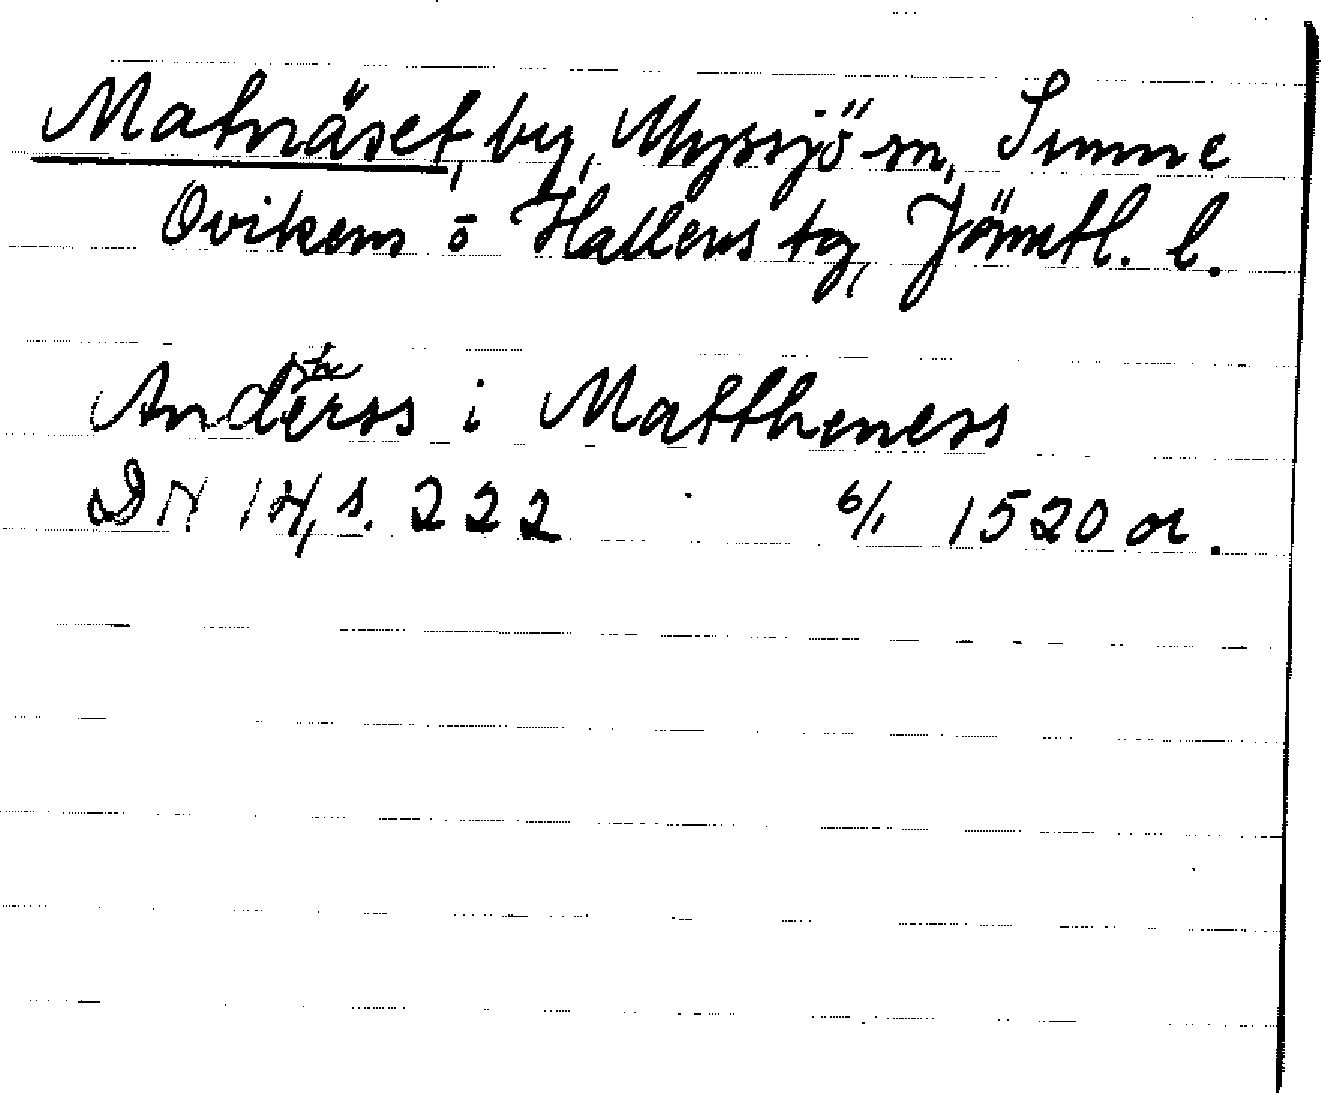 Matnäset, by, Myssjö sn, Sunne
Ovikens o Hallens tg, Jämtl. l.
Anderss i Mattheness
DN 14, s. 222 6/1 1520 or.